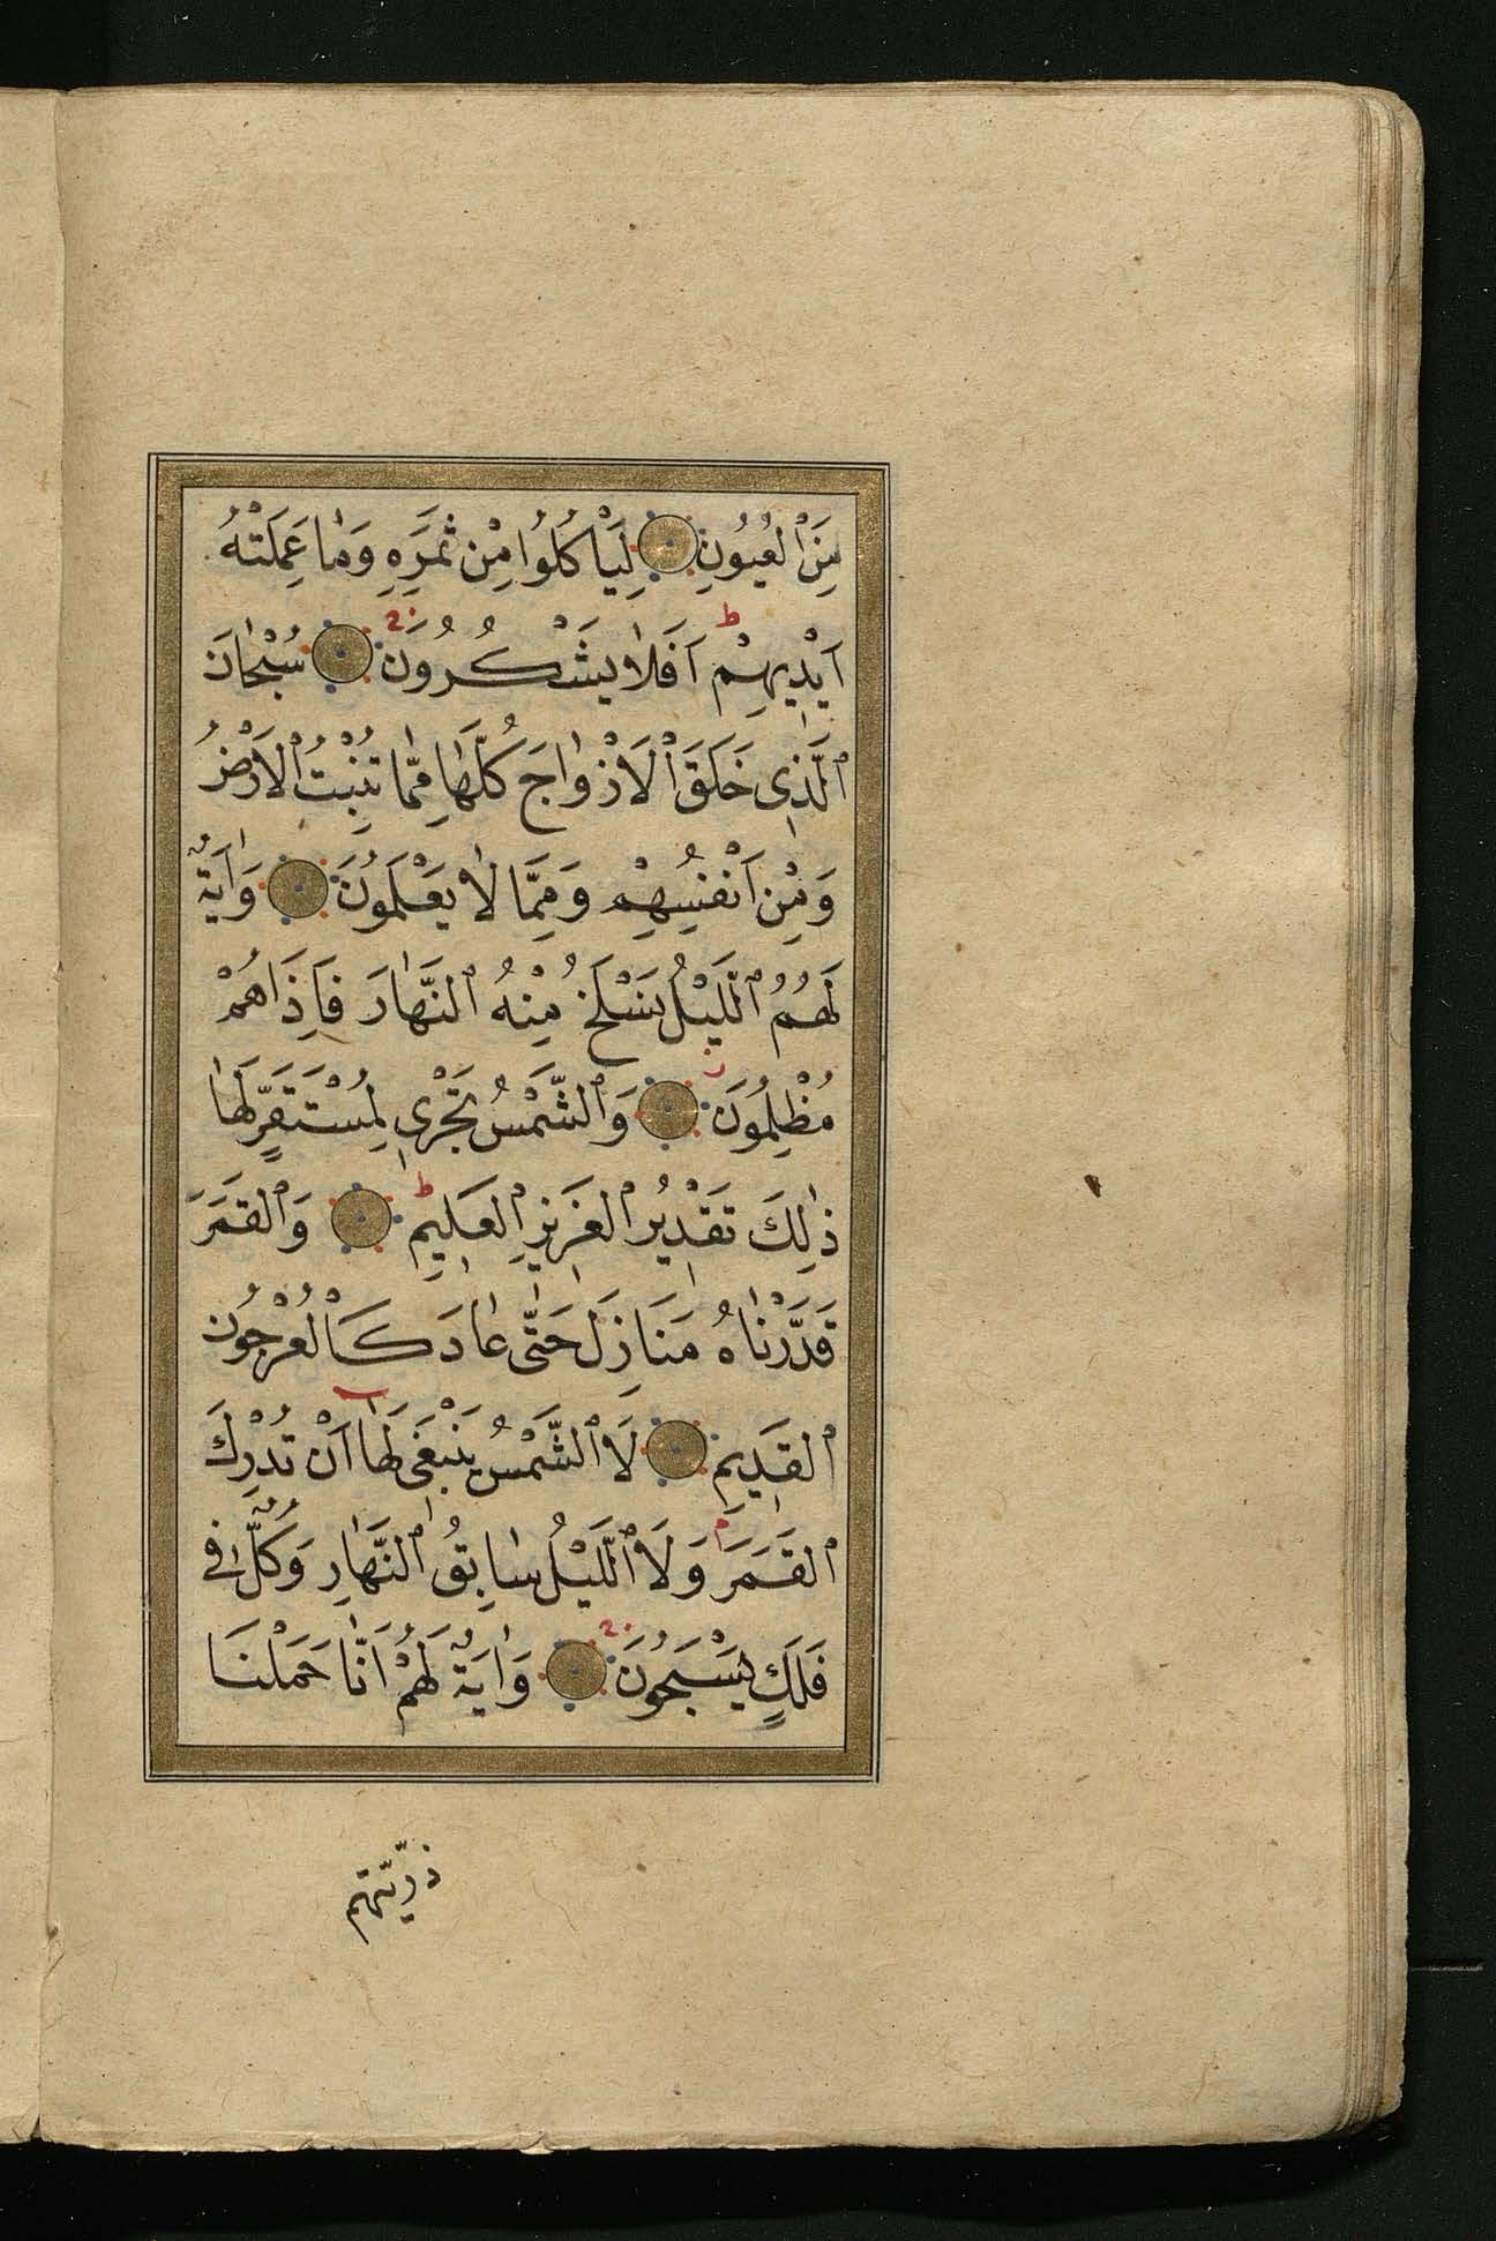 مِنَ ٱلْعُيُونِ لِيَأْكُلُوا مِنْ ثَمَرِهِ وَمَا عَمِلَتْهُ
اَيْدِيهِمْ ط اَفَلَا يَشْكُرُونَ سُبْحَانَ
ٱلَّذِى خَلَقَ ٱلْاَزْوَاجَ كُلَّهَا مِمَّا تُنْبِتُ ٱلْاَرْضُ
وَمِنْ اَنْفُسِهِمْ وَمِمَّا لَا يَعْلَمُونَ وَاٰيَةٌ
لَهُمُ ٱلَّيْلُ نَسْلَخُ مِنْهُ ٱلنَّهَارَ فَاِذَا هُمْ
مُظْلِمُونَ وَٱلشَّمْسُ تَجْرِى لِمُسْتَقَرٍّ لَهَا
ذٰلِكَ تَقْدِيرُ ٱلْعَزِيزِ ٱلْعَلِيمِ ط وَٱلْقَمَرَ
قَدَّرْنَاهُ مَنَازِلَ حَتّٰى عَادَ كَالْعُرْجُونِ
ٱلْقَدِيمِ لَا ٱلشَّمْسُ يَنْبَغِى لَهَا اَنْ تُدْرِكَ
ٱلْقَمَرَ وَلَا ٱلَّيْلُ سَابِقُ ٱلنَّهَارِ وَكُلٌّ فِى
فَلَكٍ يَسْبَحُونَ وَاٰيَةٌ لَهُمْ اَنَّا حَمَلْنَا
ذرّيّتهم